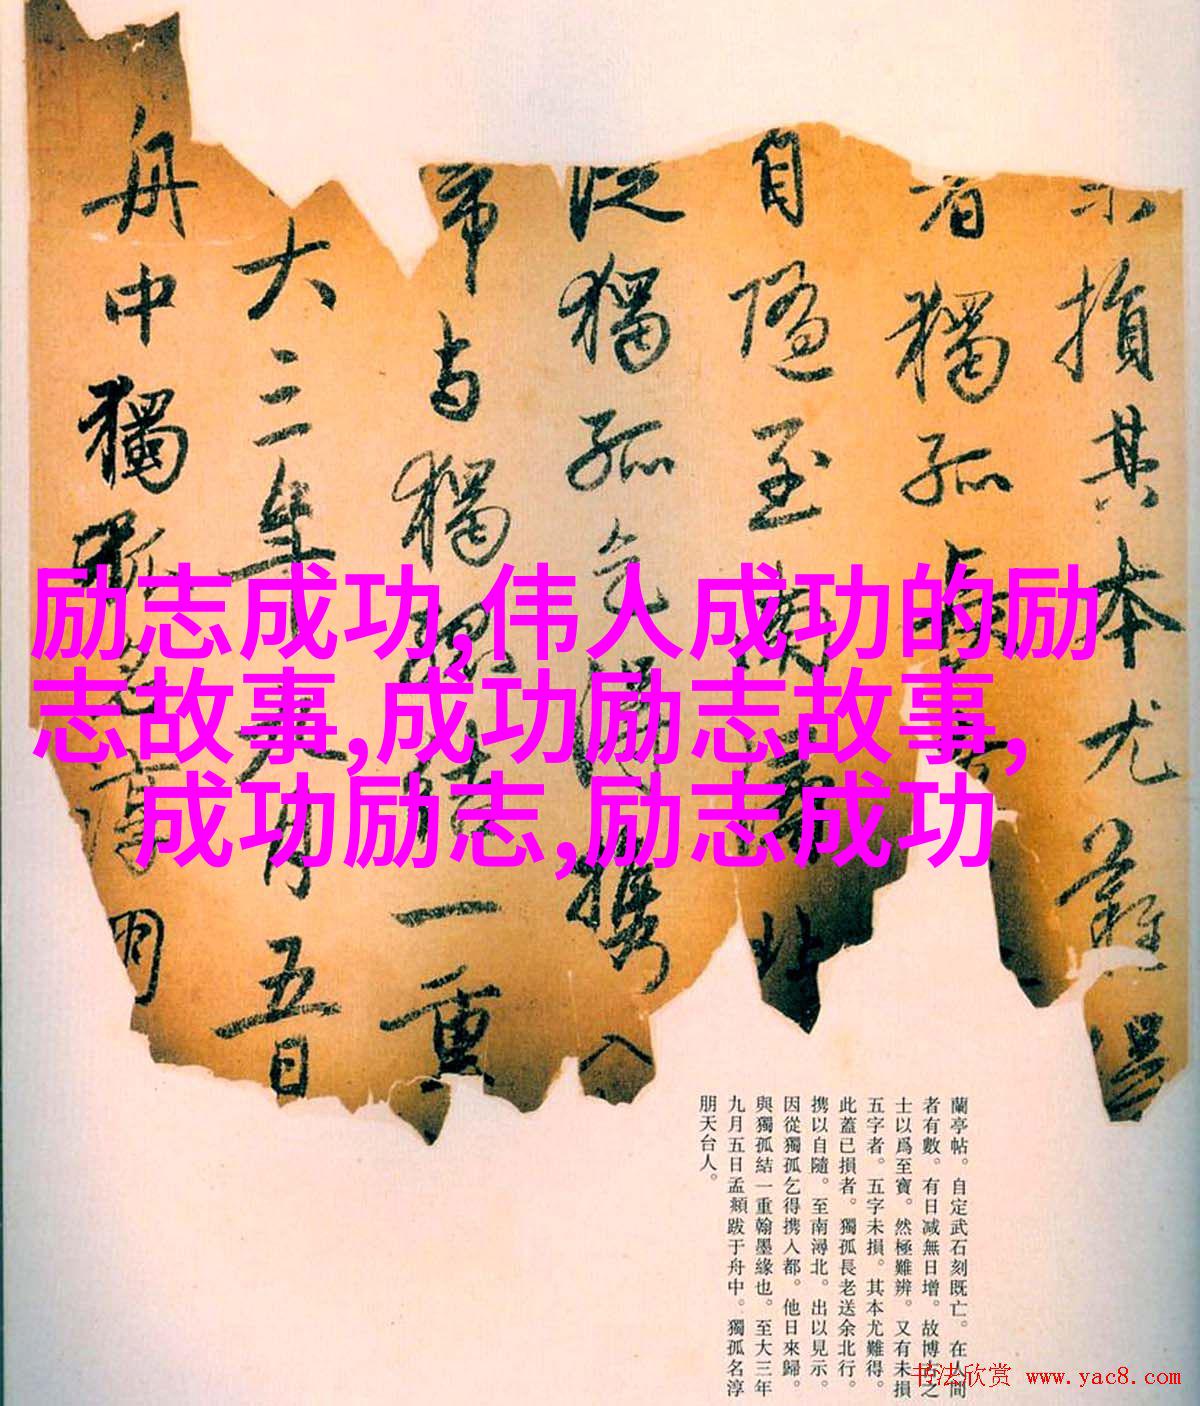 不損其本尤難得
者獨孤長
自隨至南潯北
從獨孤乞得携入
帝与獨孤結一重
大三年九月五日
舟中獨孤名淳朋
励志成功,伟人成功的励
志故事,成功励志故事,
成功励志,励志成功
蘭亭帖。自定武石刻既亡。在人間
者有數。有日减無日增。故博古之
士以爲至寶。然極難辨。又有未損
五字者。五字未損。其本尤難得。
此蓋已損者。獨孤長老送余北行。
携以自隨。至南潯北。出以見示。
因從獨孤乞得携入都。他日來歸。
與獨孤結一重翰墨緣也。至大三年
九月五日孟頫跋于舟中。獨孤名淳
朋天台人。
书法欣赏 www.yac8.com